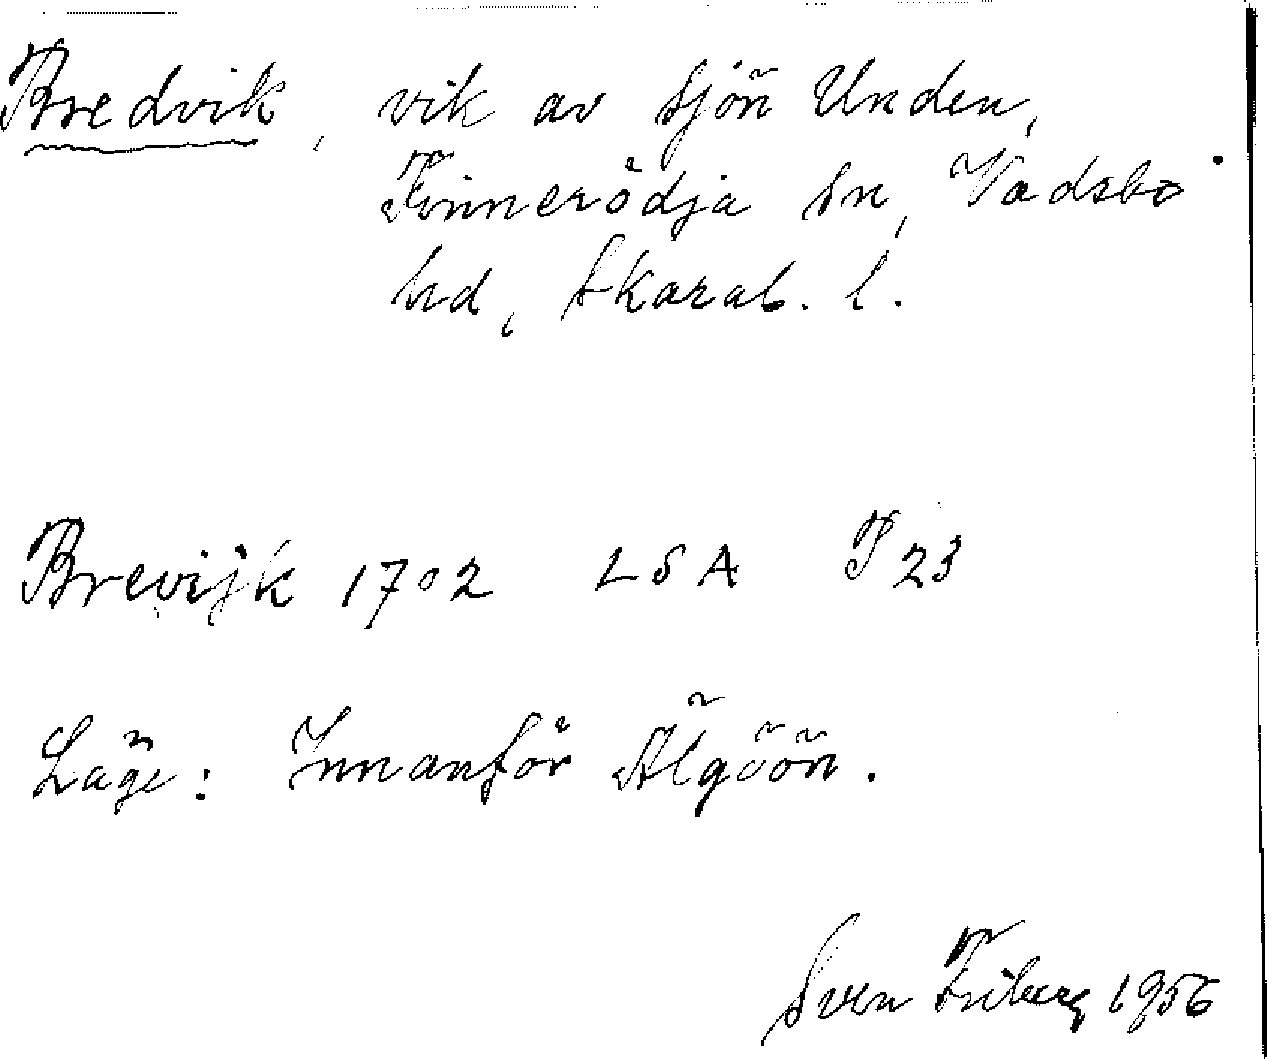 Bredvik, vik av sjön Unden,
Finnerödja sn, Vadsbo
hd, Skarab. l.
Brevijk 1702 LSA P 23
Läge: Innanför Älgöön.
Sven Friberg 1956